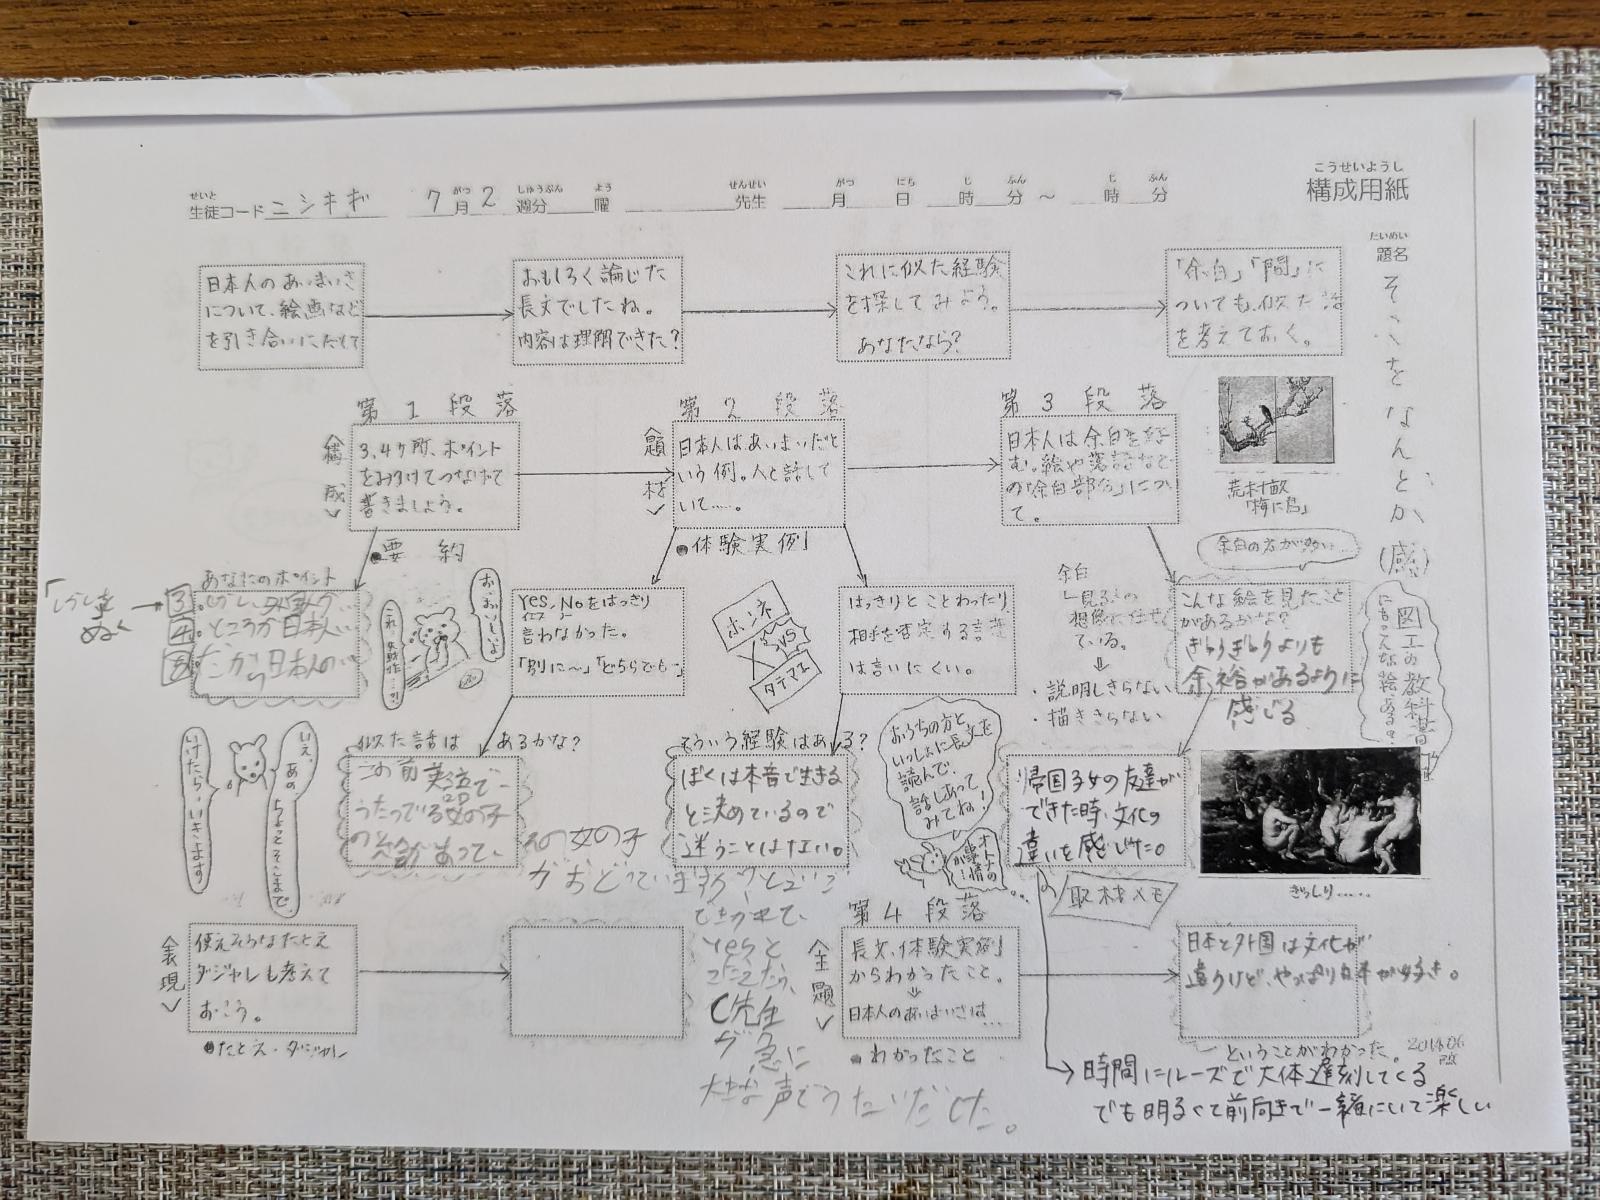 こうせいようし
構成用紙
せいと
生徒コード ニシキギ 7月2週分 曜 先生 月 日 時 分 ～ 時 分
がつ しゅうぶん よう せんせい がつ にち じ ふん じ ふん
だいめい
題名
そこをなんとか(感)
日本人のあいまいさ
について、絵画など
を引き合いにだして
おもしろく論じた
長文でしたね。
内容は理解できた?
これに似た経験
を探してみよう。
あなたなら?
「余白」「間」に
ついても、似た話
を考えておく。
第1段落
〈構成〉
3,4ヶ所、ポイント
をみつけてつなげて
書きましょう。
●要約
第2段落
〈題材〉
日本人はあいまいだと
いう例。人と話して
いて……。
●体験実例
第3段落
日本人は余白を好
む。絵や落語など
の「余白部分」につい
て。
「梅に鳥」
余白の方が多い…
あなたのポイント
3.
4.ところが日本人…
だから日本人の…
お、おいしいよ
これ失敗作…?
Yes,Noをはっきり
イエス ノー
言わなかった。
「別に〜」「どちらでも…」
ホンネ
VS
タテマエ
はっきりとことわったり
相手を否定する言葉
は言いにくい。
余白
└見る人の
想像に任せ
ている。
⇓
・説明しきらない
・描ききらない
こんな絵を見たこと
があるかな?
ぎりぎりよりも
余裕があるように
感じる
図工の教科書
にもこんな絵、ある?
いえ、あの、ちょっとそこまで。
いけたら、いきます
似た話は あるかな?
この前
うたっている女の子
の絵があって、
その女の子
がおどっていますか?
Yesと
C先生
が急に
大きな声でうたいだした。
そういう経験はある?
ぼくは本音で生きる
と決めているので
迷うことはない。
おうちの方と
いっしょに長文を
読んで、
話しあって
みてね!
オトナの
事情
が…!
帰国子女の友達が
できた時、文化の
違いを感じた。
取材メモ
ぎっしり……
→時間にルーズで大体遅刻してくる
でも明るくて前向きで一緒にいて楽しい
〈表現〉
使えそうなたとえ
ダジャレも考えて
おこう。
●たとえ・ダジャレ
第4段落
〈主題〉
長文、体験実例
からわかったこと。
⇓
日本人のあいまいさは…
●わかったこと
日本と外国は文化が
違うけど、やっぱり日本が好き。
ということがわかった。